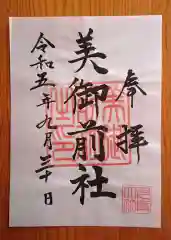 奉拝
美御前社
令和五年九月三十日